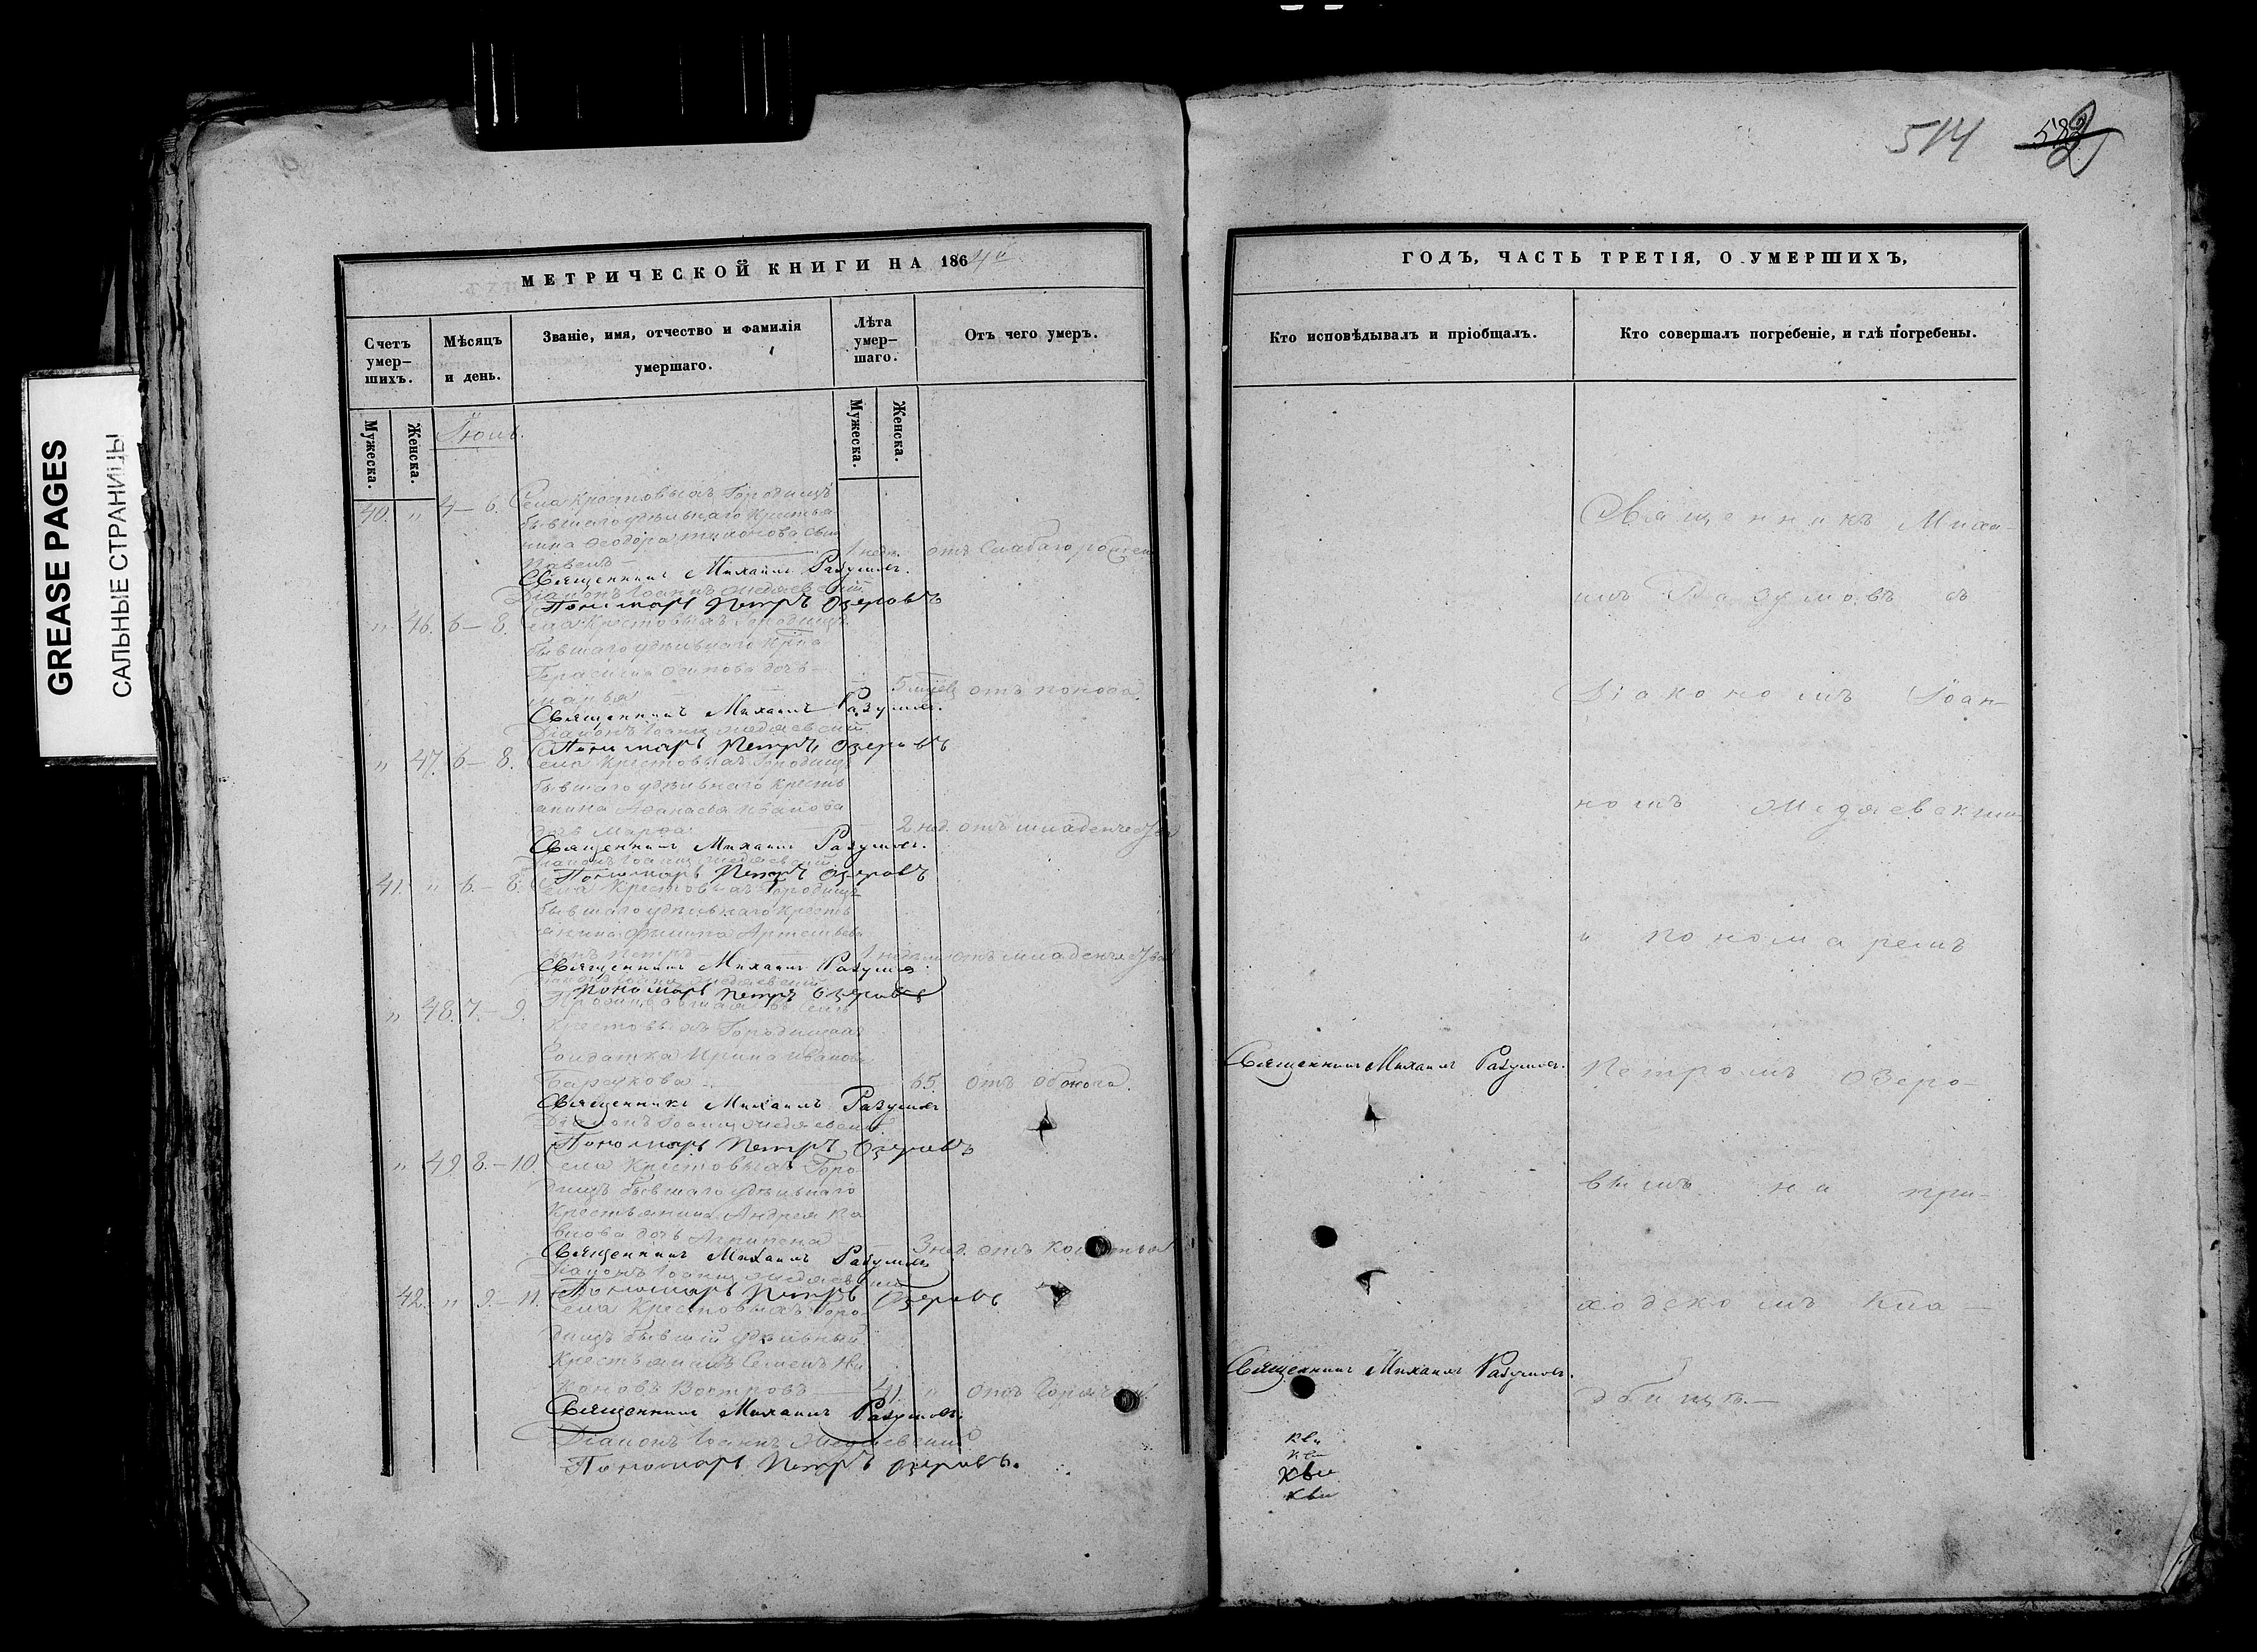 GREASE PAGES
САЛЬНЫЕ СТРАНИЦЫ
МЕТРИЧЕСКОЙ КНИГИ НА 1864й
Счетъ умер-
шихъ.
Мѣсяцъ
и день.
Званіе, имя, отчество и фамилія
умершаго.
Лѣта
умер-
шаго.
Отъ чего умеръ.
Мужеска.
Женска.
Мужеска.
Женска.
40. " 4 – 6. Села Крестовыхъ Городищъ
бывшаго удѣльнаго крестья
нина Ѳеодора сынъ
Павелъ – 1 нед. отъ слабаго рожден
Священникъ Михаилъ Разумовъ.
Діаконъ Іоаннъ Медяевскій
Пономарь Петръ Озеровъ
" 46. 6 – 8. Села Крестовыхъ Городищъ
бывшаго удѣльнаго крна
Герасима Осипова дочь –
Марья 5 мцевъ отъ поноса.
Священникъ Михаилъ Разумовъ.
Діаконъ Іоаннъ Медяевскій
Пономарь Петръ Озеровъ
" 47. 6 – 8. Села Крестовыхъ Городищъ
бывшаго удѣльнаго кресть
янина Аѳанасья Иванова
дочь Марѳа 2 нед. отъ младенчества
Священникъ Михаилъ Разумовъ.
Діаконъ Іоаннъ Медяевскій
Пономарь Петръ Озеровъ
41. " 6. – 8. Села Крестовыхъ Городищъ
бывшаго удѣльнаго кресть
янина Филипа Артемьева
сынъ Петръ 1 недѣли отъ младенчества
Священникъ Михаилъ Разумовъ.
Діаконъ Іоаннъ Медяевскій
Пономарь Петръ Озеровъ
" 48. 7. – 9. въ селѣ
Крестовыхъ Городищахъ
Солдатка Ирина Иванова
Барсукова – 65. отъ
Священникъ Михаилъ Разумовъ
Діаконъ Іоаннъ Медяевскій
Пономарь Петръ Озеровъ
" 49. 8. – 10. Села Крестовыхъ Горо-
дищъ бывшаго удѣльнаго
крестьянина Андрея
дочь Агрипена 3 нед. отъ
Священникъ Михаилъ Разумовъ
Діаконъ Іоаннъ Медяевскій
Пономарь Петръ Озеровъ
42. " 9. – 11. Села Крестовыхъ Горо-
дищъ бывшій удѣльный
крестьянинъ Семенъ Ни
коновъ Востровъ 41 " отъ горячки
Священникъ Михаилъ Разумовъ.
Діаконъ Іоаннъ Медяевскій
Пономарь Петръ Озеровъ.
514
ГОДЪ, ЧАСТЬ ТРЕТІЯ, О УМЕРШИХЪ,
Кто исповѣдывалъ и пріобщалъ.
Кто совершалъ погребеніе, и гдѣ погребены.
Священникъ Миха-
илъ Разумовъ съ
Діакономъ Іоан-
номъ Медяевским
и пономаремъ
Священникъ Михаилъ Разумовъ.
Петромъ Озеро-
вымъ на при-
ходскомъ кла-
Священникъ Михаилъ Разумовъ.
дбищѣ. –